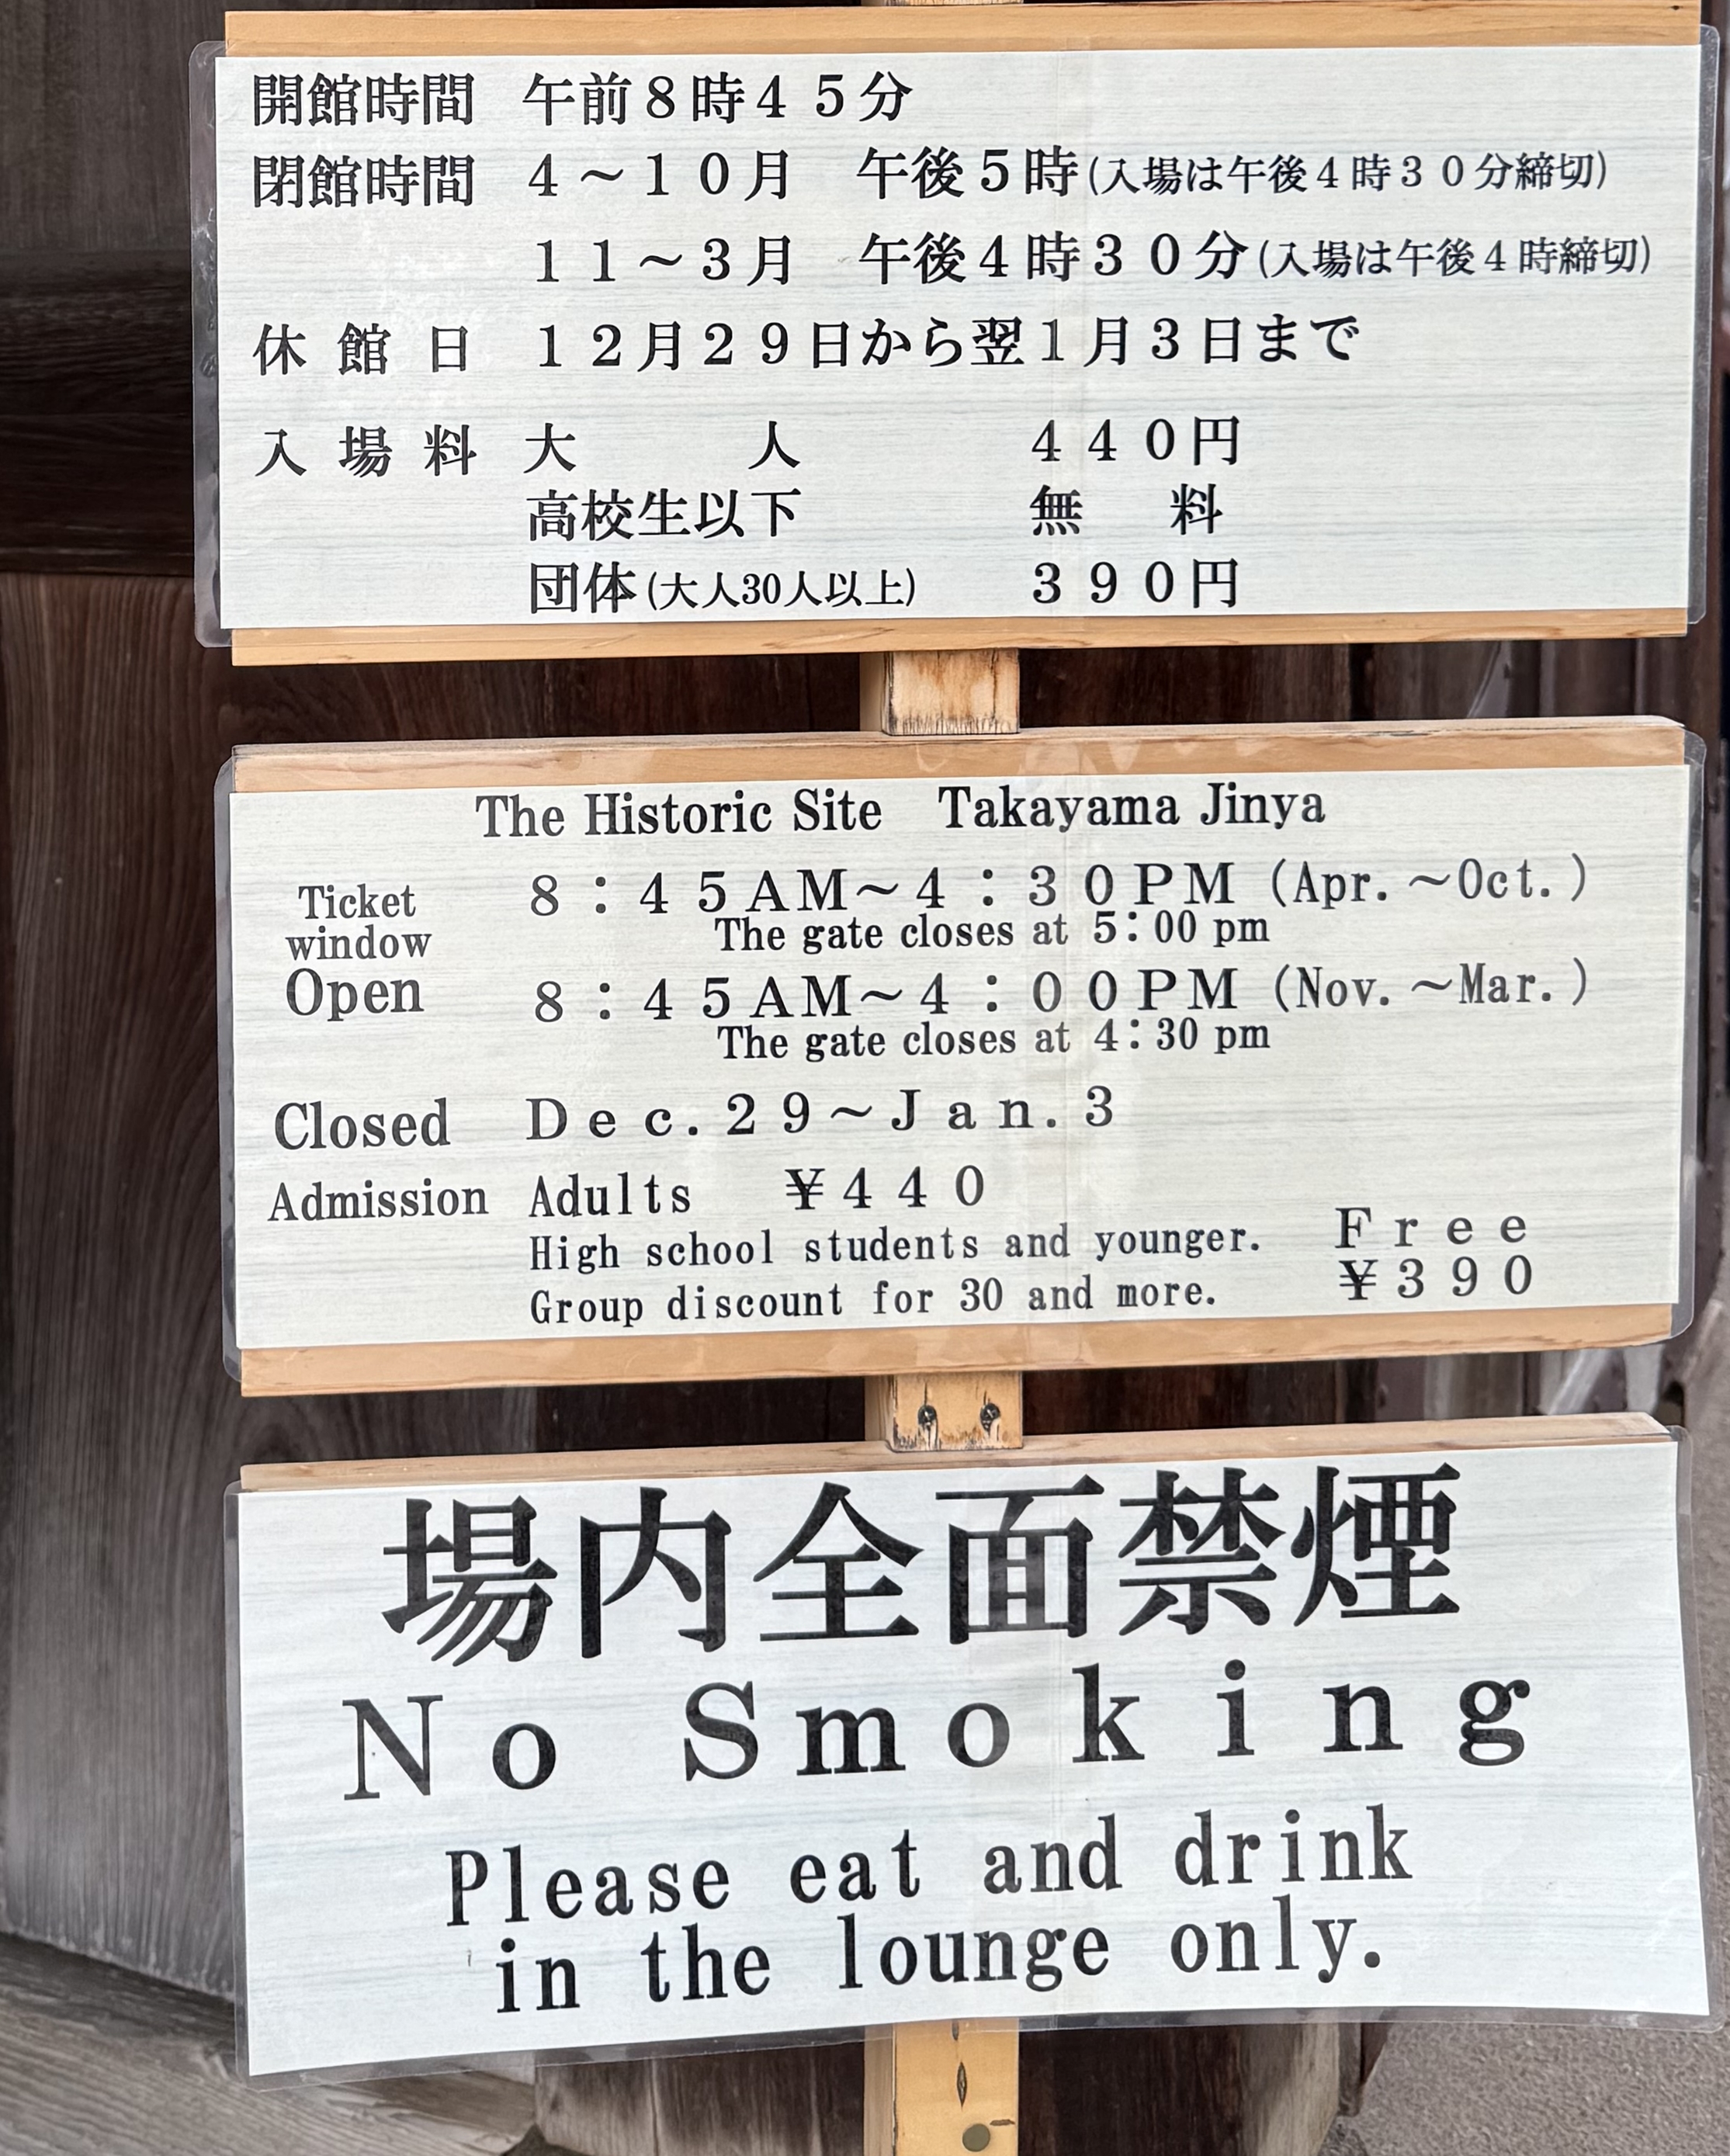 開館時間 午前8時45分
閉館時間 4～10月 午後5時(入場は午後4時30分締切)
11～3月 午後4時30分(入場は午後4時締切)
休館日 12月29日から翌1月3日まで
入場料 大人 440円
高校生以下 無料
団体(大人30人以上) 390円
The Historic Site Takayama Jinya
Ticket window Open 8:45AM～4:30PM (Apr.～Oct.)
The gate closes at 5:00 pm
8:45AM～4:00PM (Nov.～Mar.)
The gate closes at 4:30 pm
Closed Dec.29～Jan.3
Admission Adults ¥440
High school students and younger. Free
Group discount for 30 and more. ¥390
場内全面禁煙
No Smoking
Please eat and drink
in the lounge only.